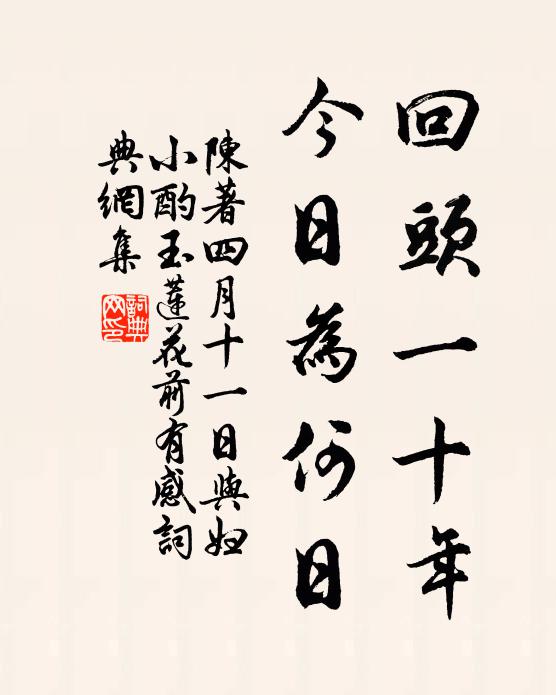 回頭一十年
今日為何日
陳著四月十一日與妞
小酌玉蓮花前有感詞
典網集
詞典
网印